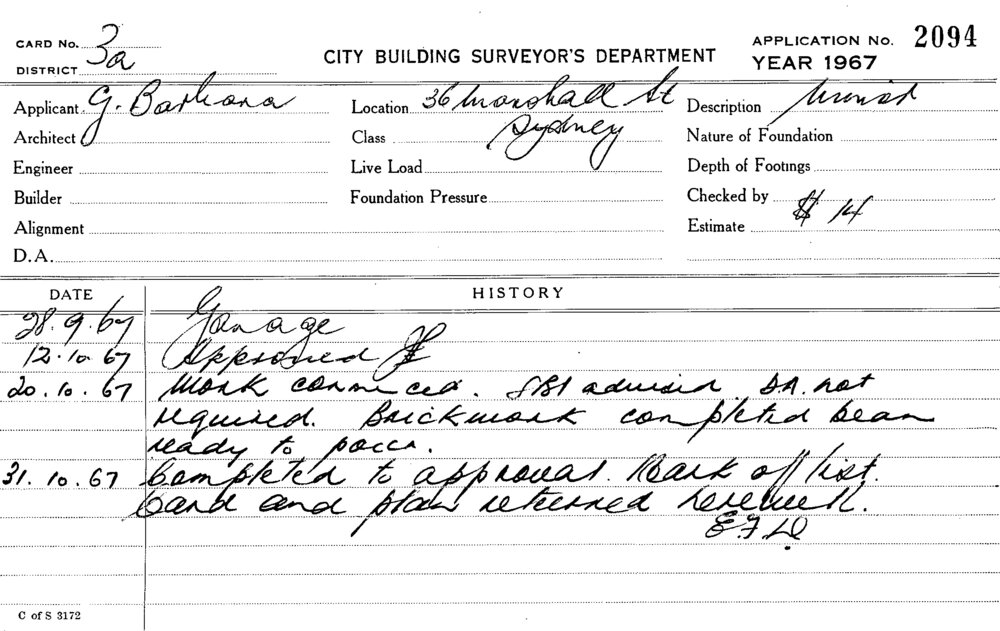 CARD No. 3a
DISTRICT
CITY BUILDING SURVEYOR'S DEPARTMENT
APPLICATION No. 2094
YEAR 1967
Applicant G. Barbara Location 36 Marshall St Description
Architect Class Sydney Nature of Foundation
Engineer Live Load Depth of Footings
Builder Foundation Pressure Checked by
Alignment Estimate $ 14
D.A.
DATE HISTORY
28.9.67 Garage
12.10.67 Approved
20.10.67 Work commced. SBI advised D.A. not
required. Brickwork completed beam
ready to pour.
31.10.67 Completed to approval. Mark off list.
Card and plan returned herewith.
C of S 3172